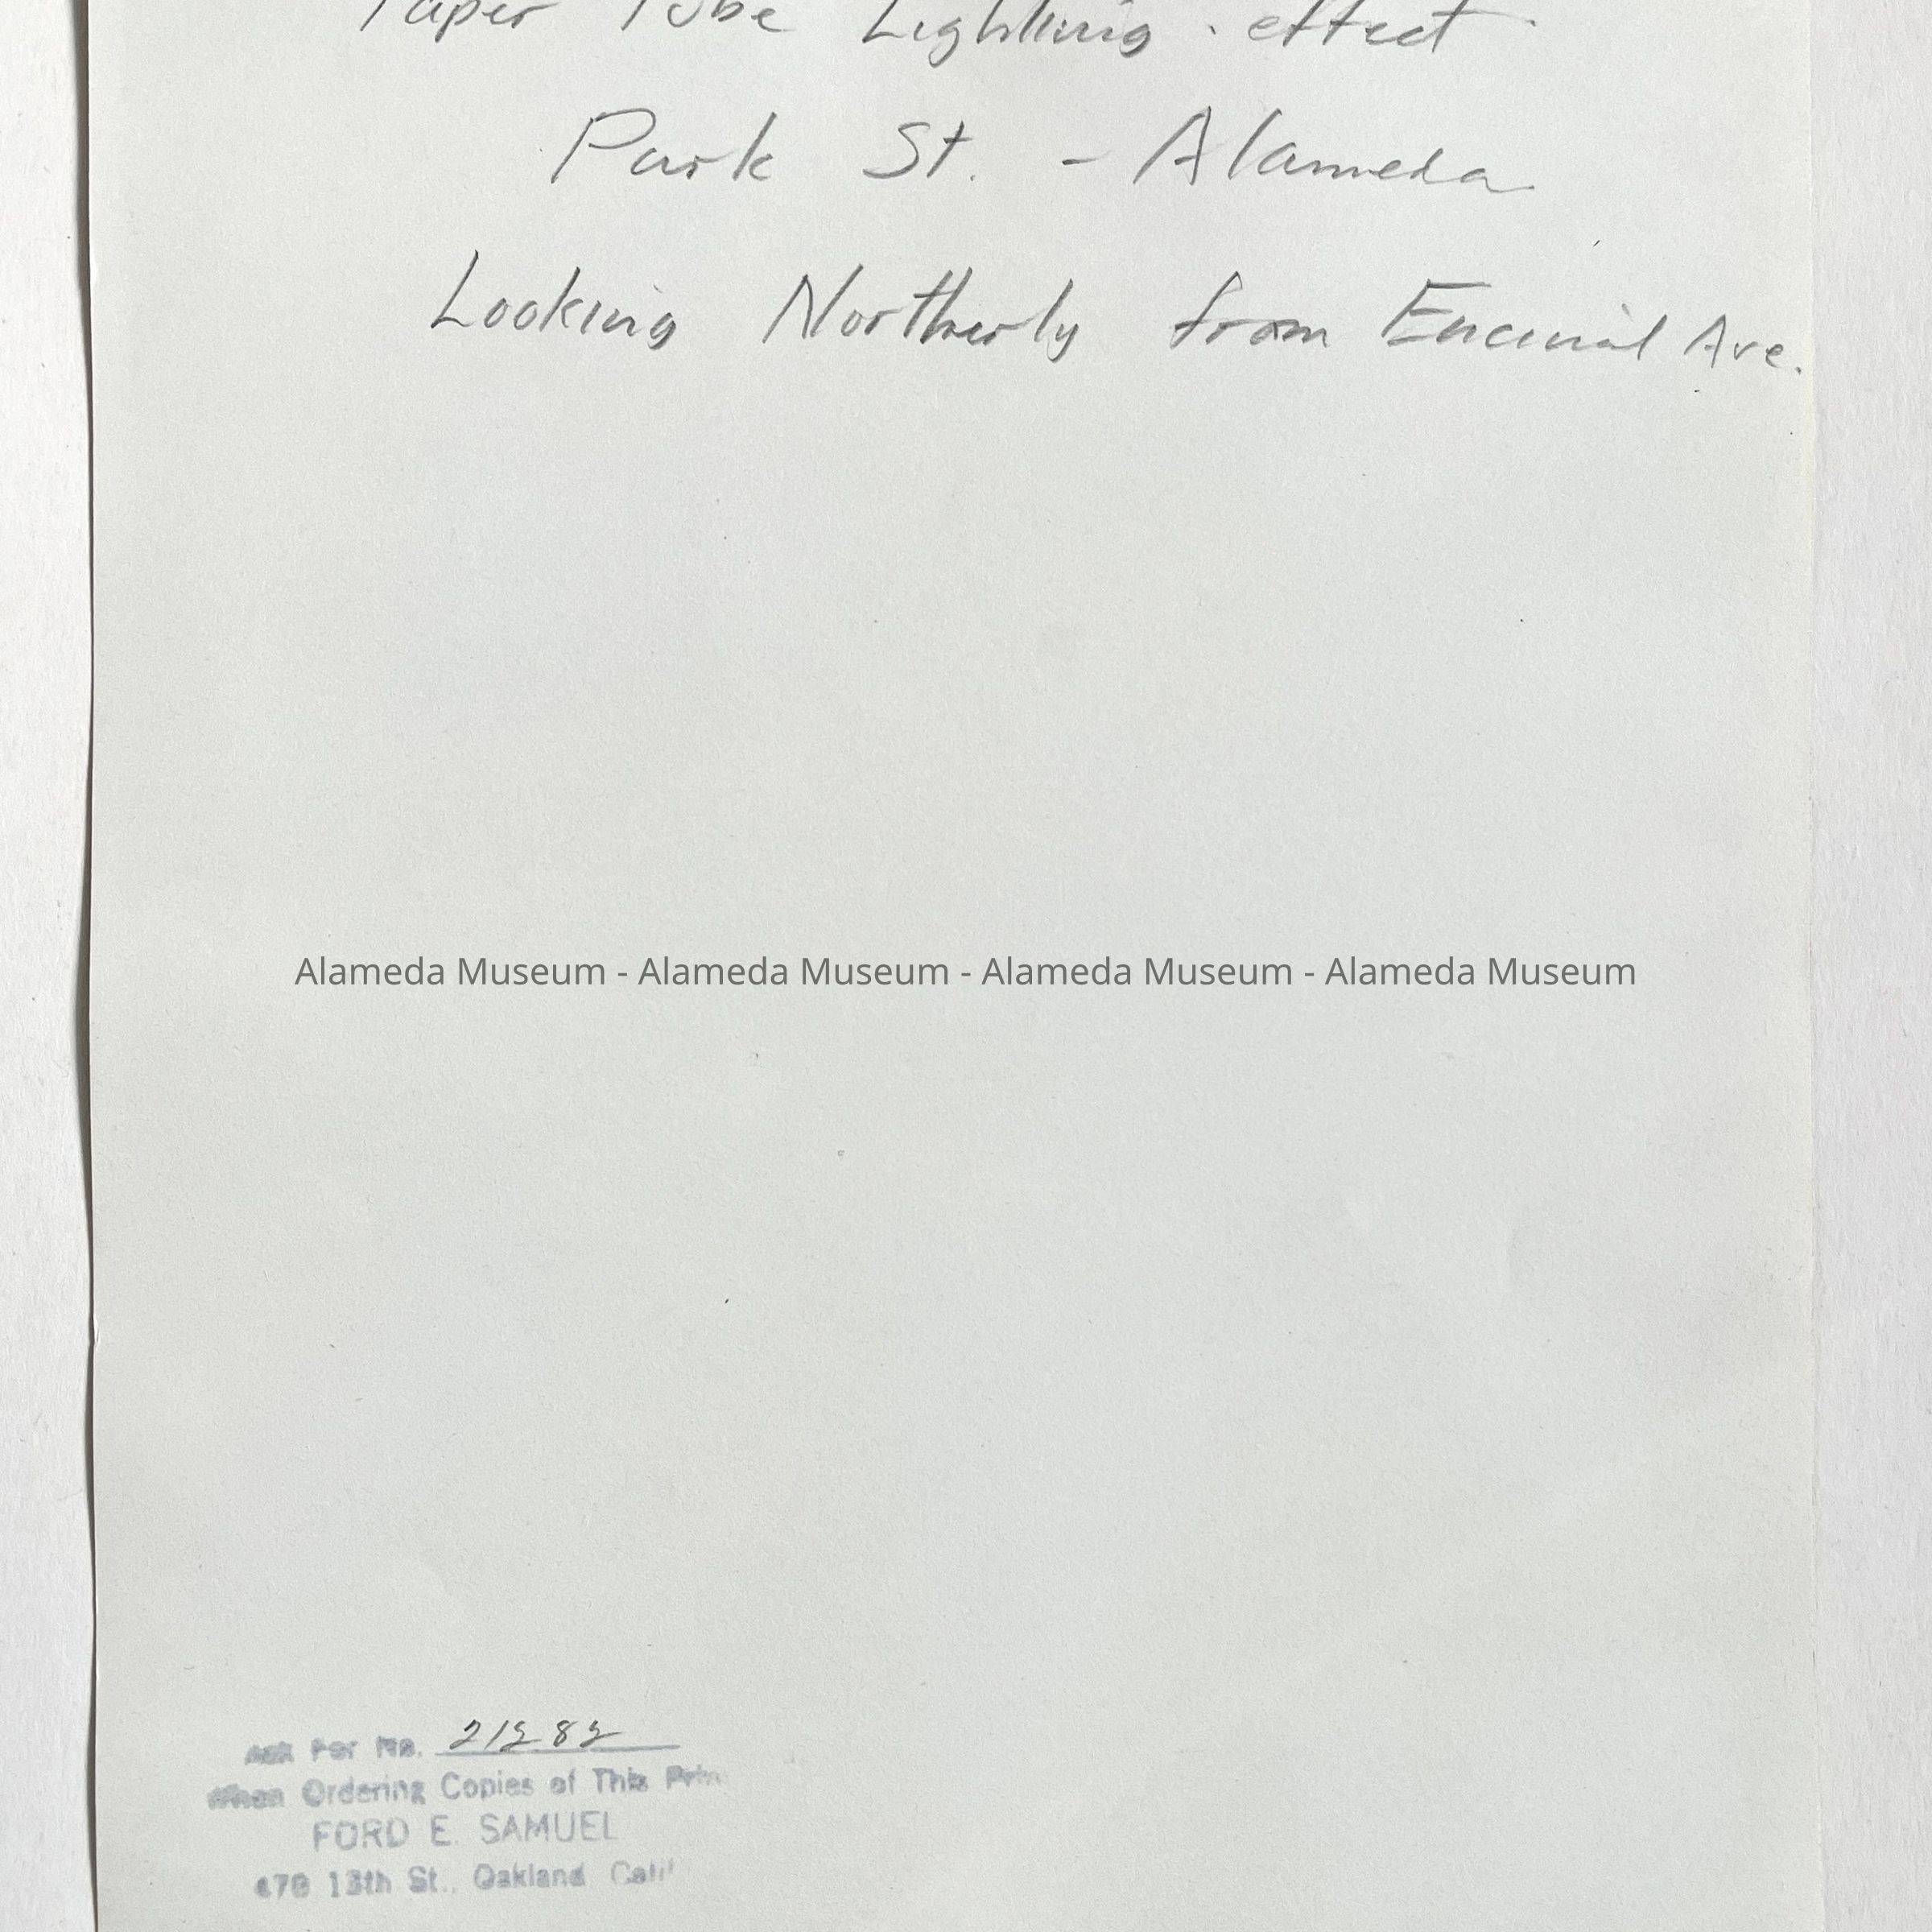 Paper Tube Lighting effect
Park St. - Alameda
Looking Northerly from Encinal Ave.
Alameda Museum - Alameda Museum - Alameda Museum - Alameda Museum
Ask For No. 21282
When Ordering Copies of This Print
FORD E. SAMUEL
13th St., Oakland Calif